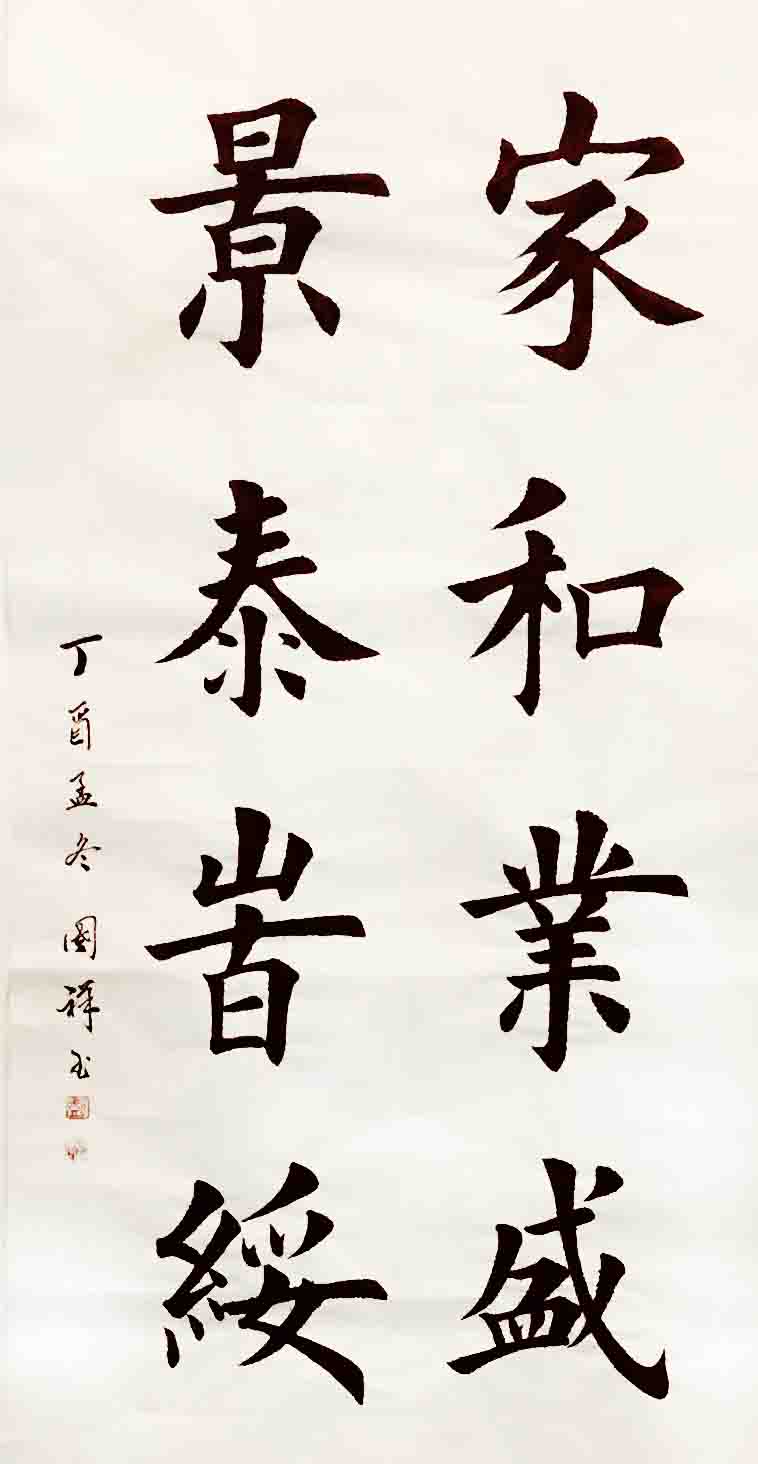 家和業盛
景泰旹綏
丁酉孟冬國祥书